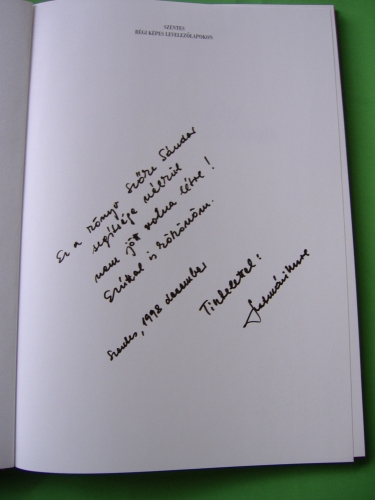 SZENTES
RÉGI KÉPES LEVELEZŐLAPOKON
Ez a könyv Szőke Sándor
segítsége nélkül
nem jött volna létre!
Ezúttal is köszönöm.
Szentes, 1998 december
Tisztelettel: